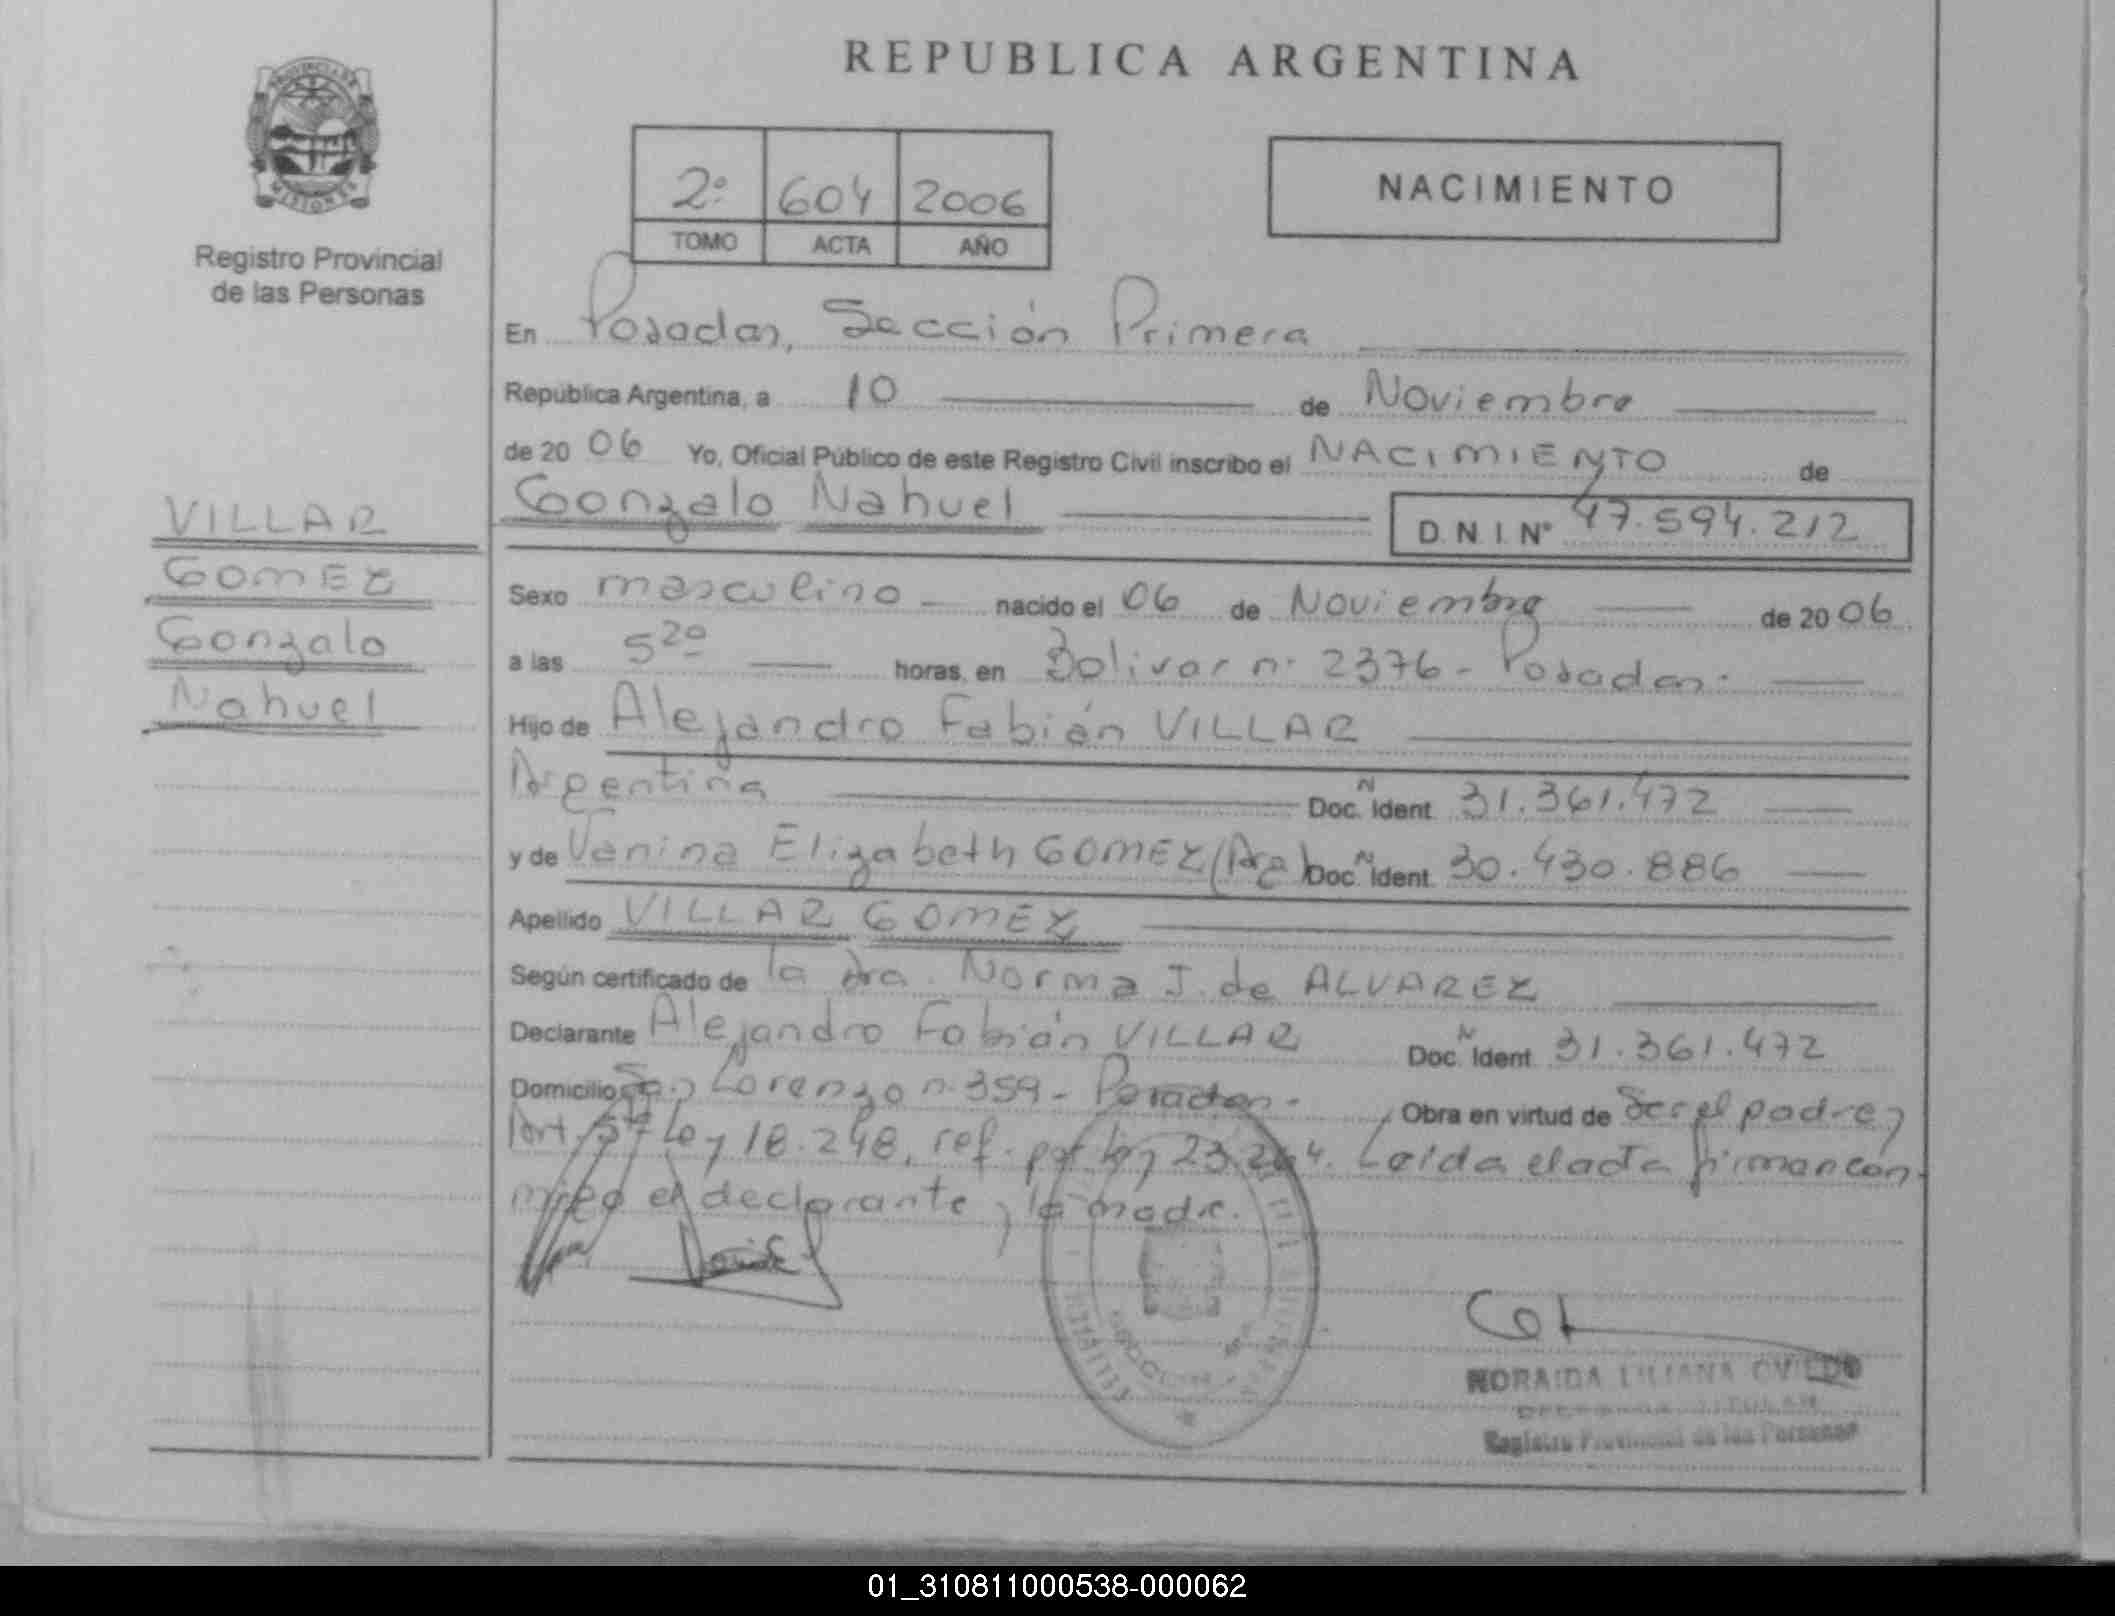 REPUBLICA ARGENTINA
PROVINCIA DE
MISIONES
Registro Provincial
de las Personas
2º 604 2006
TOMO ACTA AÑO
NACIMIENTO
En Posadas, Sección Primera
República Argentina, a 10 de Noviembre
de 20 06 Yo, Oficial Público de este Registro Civil inscribo el NACIMIENTO de
Gonzalo Nahuel D.N.I. Nº 47.594.212
VILLAR
GOMEZ
Gonzalo
Nahuel
Sexo masculino nacido el 06 de Noviembre de 20 06
a las 5 20 horas, en Bolivar nº 2376 - Posadas.
Hijo de Alejandro Fabián VILLAR
Argentina Doc. Ñ Ident. 31.361.472
y de Vanina Elizabeth GOMEZ (Arg) Doc. Ñ Ident. 30.430.886
Apellido VILLAR GOMEZ
Según certificado de la dra. Norma J. de ALVAREZ
Declarante Alejandro Fabián VILLAR Doc. Ñ Ident. 31.361.472
Domicilio San Lorenzo nº 359 - Posadas - Obra en virtud de Ser el padre,
Art. 5º Ley 18.248, ref. por ley 23.264. Leída el acta firman con-
migo el declarante y la madre.
NORAIDA LILIANA OVIEDO
Registro Provincial de las Personas
01_310811000538-000062